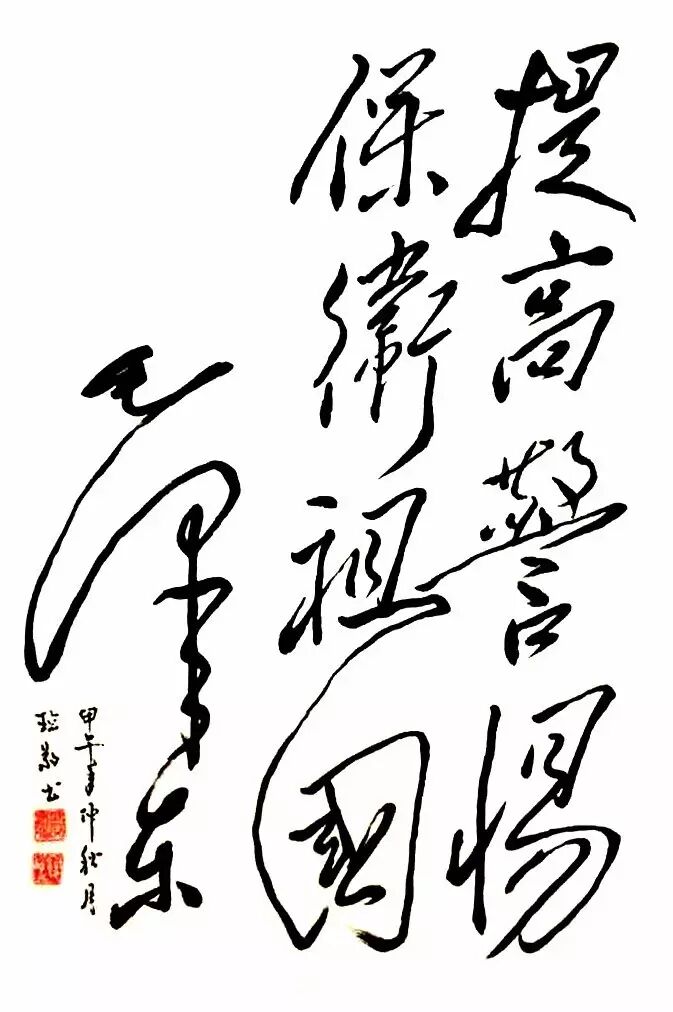 提高警惕
保衛祖國
毛澤东
甲午年仲秋月